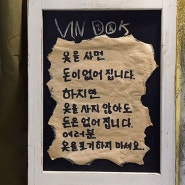 VIN DOK
옷을 사면
돈이 없어 집니다.
하지만
옷을 사지 않아도
돈은 없어 집니다.
여러분
옷을 포기하지 마셔요..